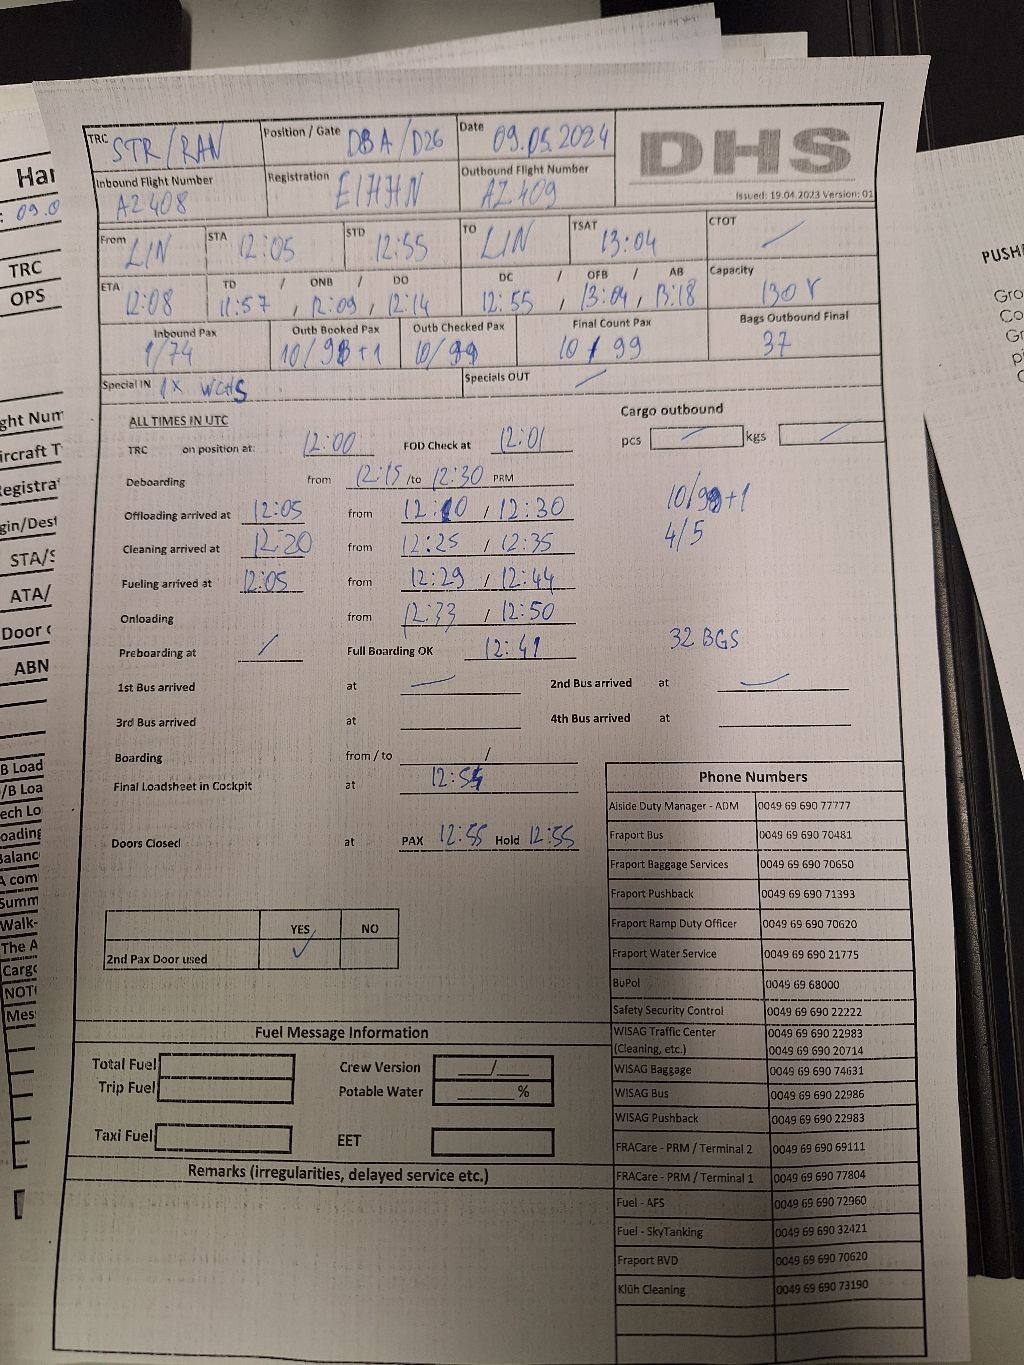 TRC STR/RAN Position / Gate D8A/D26 Date 09.05.2024 DHS
Issued: 19.04.2023 Version: 01
Inbound Flight Number AZ408 Registration EIHHN Outbound Flight Number AZ409
From LIN STA 12:05 STD 12:55 TO LIN TSAT 13:04 CTOT /
ETA 12:08 TD / ONB / DO 11:57, 12:09, 12:14 DC / OFB / AB 12:55, 13:04, 13:18 Capacity 130Y
Inbound Pax 1/74 Outb Booked Pax 10/98+1 Outb Checked Pax 10/99 Final Count Pax 10/99 Bags Outbound Final 37
Special IN 1X WCHS Specials OUT /
ALL TIMES IN UTC Cargo outbound
TRC on position at: 12:00 FOD Check at 12:01 pcs / kgs /
Deboarding from 12:15 /to 12:30 PRM
10/99+1
Offloading arrived at 12:05 from 12:10 / 12:30
4/5
Cleaning arrived at 12:20 from 12:25 / 12:35
Fueling arrived at 12:05 from 12:29 / 12:44
Onloading from 12:33 / 12:50
32 BGS
Preboarding at / Full Boarding OK 12:41
1st Bus arrived at 2nd Bus arrived at
3rd Bus arrived at 4th Bus arrived at
Boarding from / to /
Final Loadsheet in Cockpit at 12:54
Doors Closed at PAX 12:55 Hold 12:55
YES NO
2nd Pax Door used ✓
Phone Numbers
Aiside Duty Manager - ADM 0049 69 690 77777
Fraport Bus 0049 69 690 70481
Fraport Baggage Services 0049 69 690 70650
Fraport Pushback 0049 69 690 71393
Fraport Ramp Duty Officer 0049 69 690 70620
Fraport Water Service 0049 69 690 21775
BuPol 0049 69 68000
Safety Security Control 0049 69 690 22222
WISAG Traffic Center 0049 69 690 22983
(Cleaning, etc.) 0049 69 690 20714
WISAG Baggage 0049 69 690 74631
WISAG Bus 0049 69 690 22986
WISAG Pushback 0049 69 690 22983
FRACare - PRM / Terminal 2 0049 69 690 69111
FRACare - PRM / Terminal 1 0049 69 690 77804
Fuel - AFS 0049 69 690 72960
Fuel - SkyTanking 0049 69 690 32421
Fraport BVD 0049 69 690 70620
Klüh Cleaning 0049 69 690 73190
Fuel Message Information
Total Fuel Crew Version /
Trip Fuel Potable Water %
Taxi Fuel EET
Remarks (irregularities, delayed service etc.)
TRC
OPS
STA/S
ATA/
ABN
PUSH